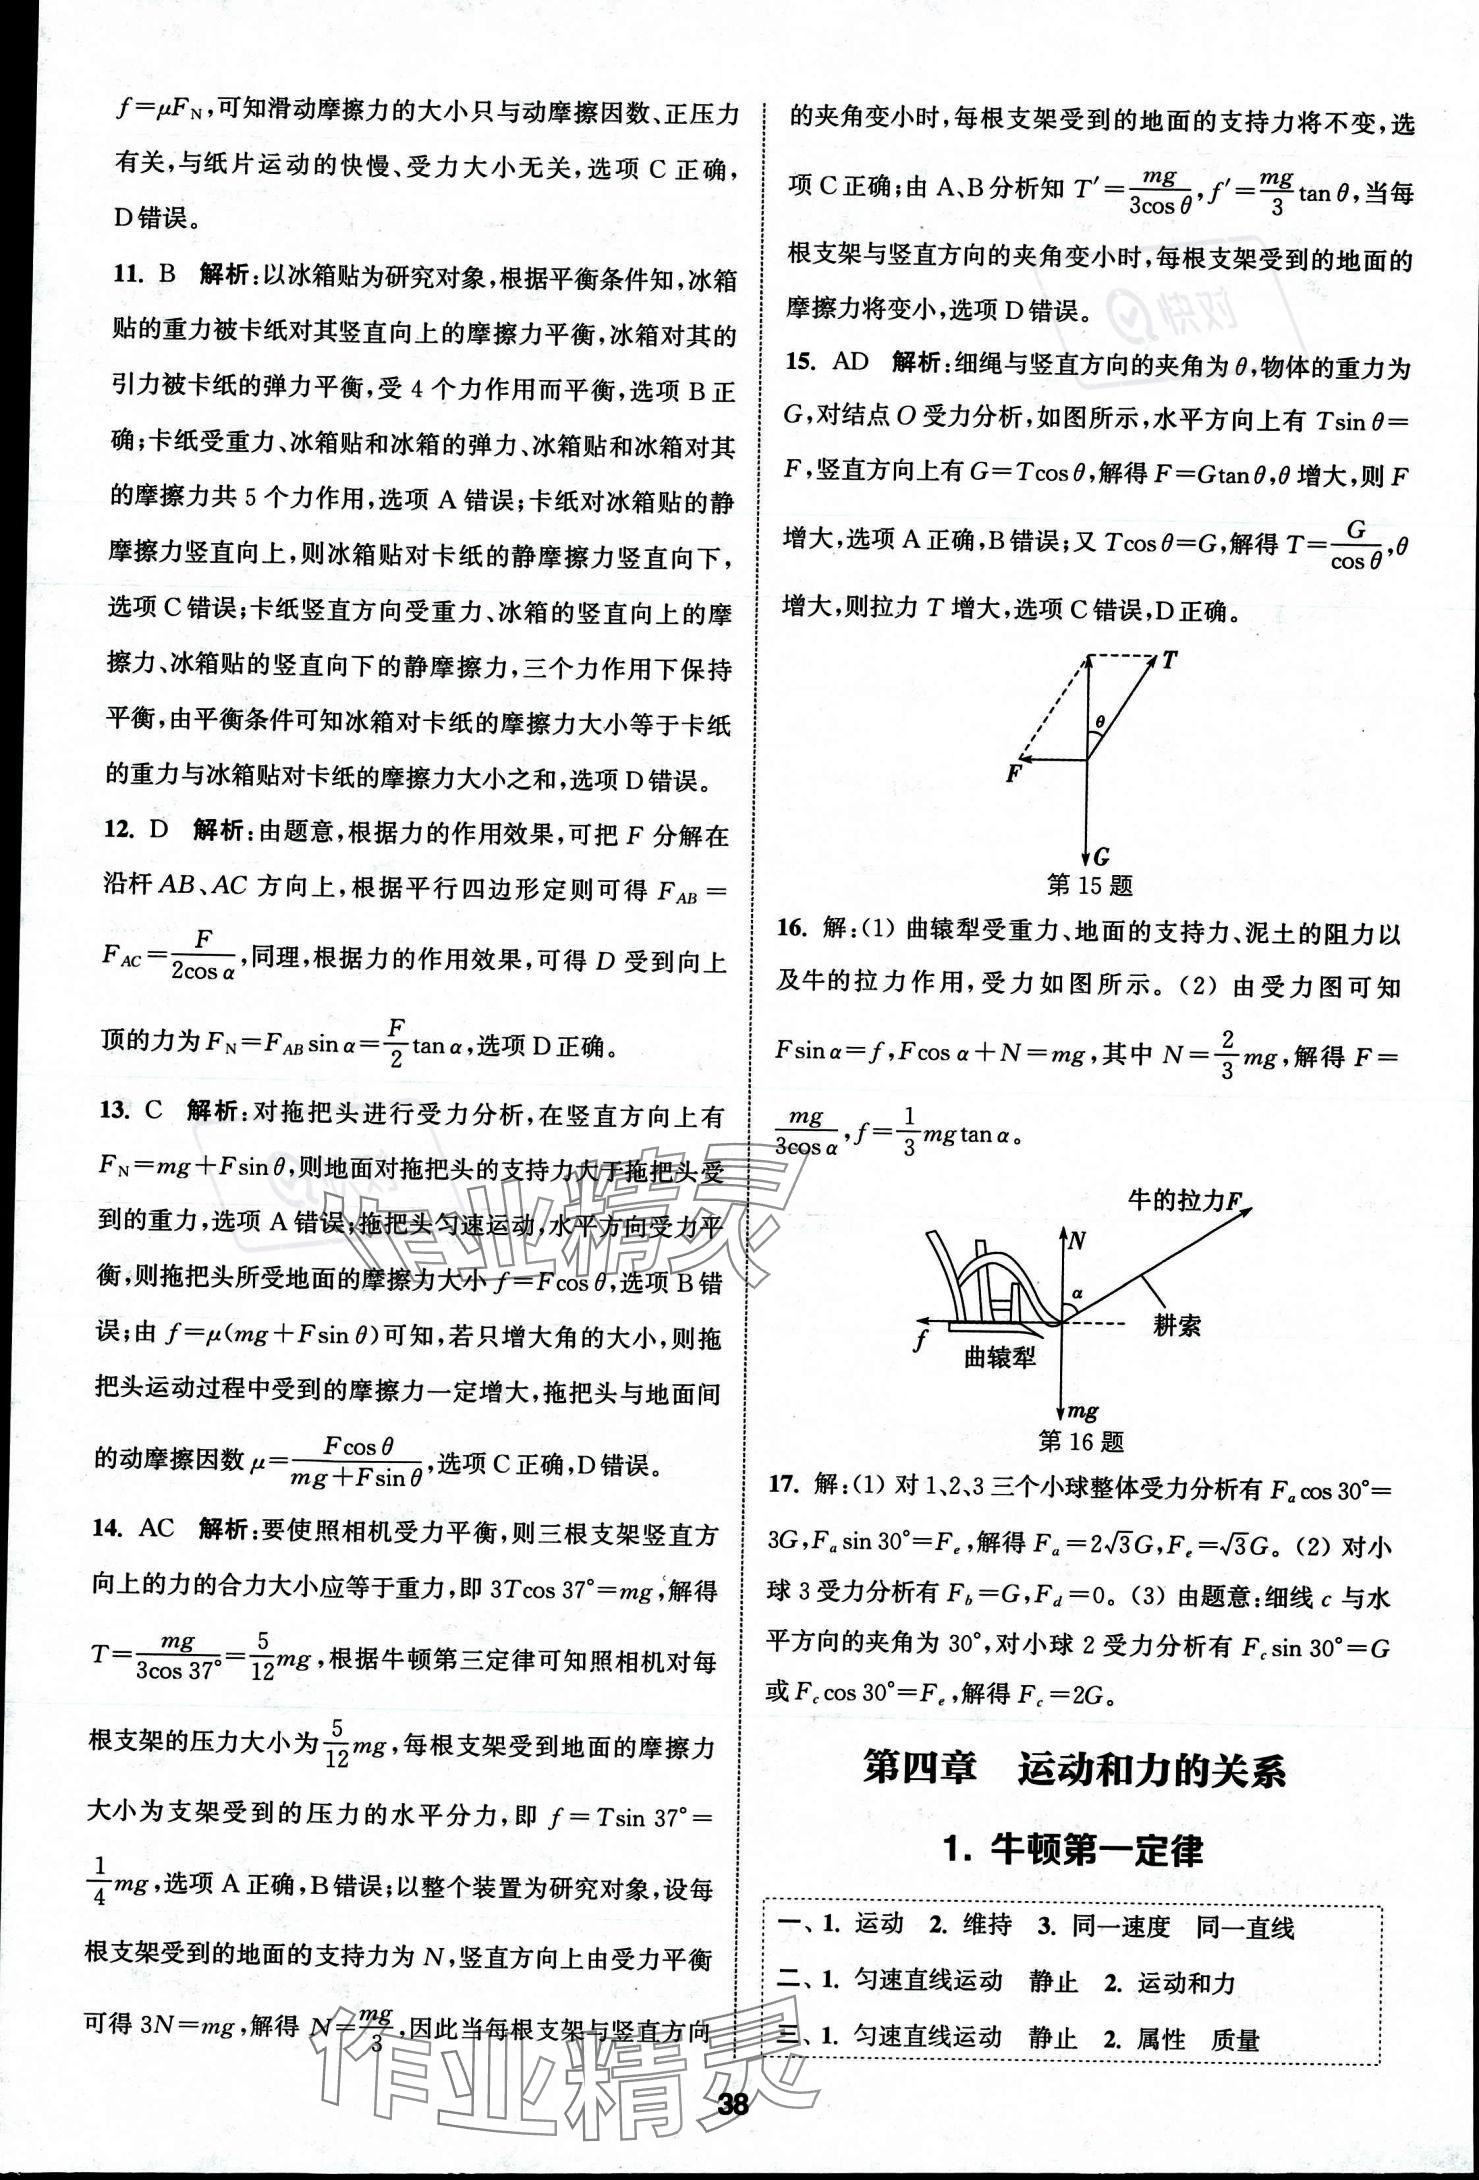 f=μF_N,可知滑动摩擦力的大小只与动摩擦因数、正压力
有关,与纸片运动的快慢、受力大小无关,选项 C 正确,
D错误。
11. B 解析:以冰箱贴为研究对象,根据平衡条件知,冰箱
贴的重力被卡纸对其竖直向上的摩擦力平衡,冰箱对其的
引力被卡纸的弹力平衡,受 4 个力作用而平衡,选项 B正
确;卡纸受重力、冰箱贴和冰箱的弹力、冰箱贴和冰箱对其
的摩擦力共 5 个力作用,选项 A 错误;卡纸对冰箱贴的静
摩擦力竖直向上,则冰箱贴对卡纸的静摩擦力竖直向下,
选项C错误;卡纸竖直方向受重力、冰箱的竖直向上的摩
擦力、冰箱贴的竖直向下的静摩擦力,三个力作用下保持
平衡,由平衡条件可知冰箱对卡纸的摩擦力大小等于卡纸
的重力与冰箱贴对卡纸的摩擦力大小之和,选项D错误。
12. D 解析:由题意,根据力的作用效果,可把 F 分解在
沿杆AB、AC 方向上,根据平行四边形定则可得 F_AB=
F_AC=F/(2cos α),同理,根据力的作用效果,可得 D 受到向上
顶的力为 F_N=F_AB sin α=F/2 tan α,选项D正确。
13. C 解析:对拖把头进行受力分析,在竖直方向上有
F_N=mg+Fsin θ,则地面对拖把头的支持力大于拖把头受
到的重力,选项 A 错误;拖把头匀速运动,水平方向受力平
衡,则拖把头所受地面的摩擦力大小 f=Fcos θ,选项 B 错
误;由 f=μ(mg+Fsin θ)可知,若只增大角的大小,则拖
把头运动过程中受到的摩擦力一定增大,拖把头与地面间
的动摩擦因数 μ=Fcos θ/(mg+Fsin θ),选项C正确,D错误。
14. AC 解析:要使照相机受力平衡,则三根支架竖直方
向上的力的合力大小应等于重力,即 3Tcos 37°=mg,解得
T=mg/(3cos 37°)=5/12 mg,根据牛顿第三定律可知照相机对每
根支架的压力大小为5/12 mg,每根支架受到地面的摩擦力
大小为支架受到的压力的水平分力,即 f=Tsin 37°=
1/4 mg,选项 A正确,B错误;以整个装置为研究对象,设每
根支架受到的地面的支持力为 N,竖直方向上由受力平衡
可得 3N=mg,解得 N=mg/3,因此当每根支架与竖直方向
的夹角变小时,每根支架受到的地面的支持力将不变,选
项C正确;由 A、B分析知 T′=mg/(3cos θ),f′=mg/3 tan θ,当每
根支架与竖直方向的夹角变小时,每根支架受到的地面的
摩擦力将变小,选项D错误。
15. AD 解析:细绳与竖直方向的夹角为θ,物体的重力为
G,对结点 O 受力分析,如图所示,水平方向上有 Tsin θ=
F,竖直方向上有G=Tcos θ,解得F=Gtan θ,θ 增大,则 F
增大,选项A正确,B错误;又Tcos θ=G,解得T=G/cos θ,θ
增大,则拉力 T 增大,选项C错误,D正确。
T
θ
F
G
第15题
16. 解:(1) 曲辕犁受重力、地面的支持力、泥土的阻力以
及牛的拉力作用,受力如图所示。(2) 由受力图可知
Fsin α=f,Fcos α+N=mg,其中 N=2/3 mg,解得 F=
mg/(3cos α),f=1/3 mgtan α。
牛的拉力F
N
α
耕索
f
曲辕犁
mg
第16题
17. 解:(1) 对1、2、3三个小球整体受力分析有 F_a cos 30°=
3G,F_a sin 30°=F_e,解得 F_a=2√3G,F_e=√3G。(2) 对小
球 3 受力分析有 F_b=G,F_d=0。(3) 由题意:细线 c 与水
平方向的夹角为 30°,对小球 2 受力分析有 F_c sin 30°=G
或 F_c cos 30°=F_e,解得 F_c=2G。
第四章 运动和力的关系
1. 牛顿第一定律
一、1. 运动 2. 维持 3. 同一速度 同一直线
二、1. 匀速直线运动 静止 2. 运动和力
三、1. 匀速直线运动 静止 2. 属性 质量
38
快对
作业精灵
作业精灵